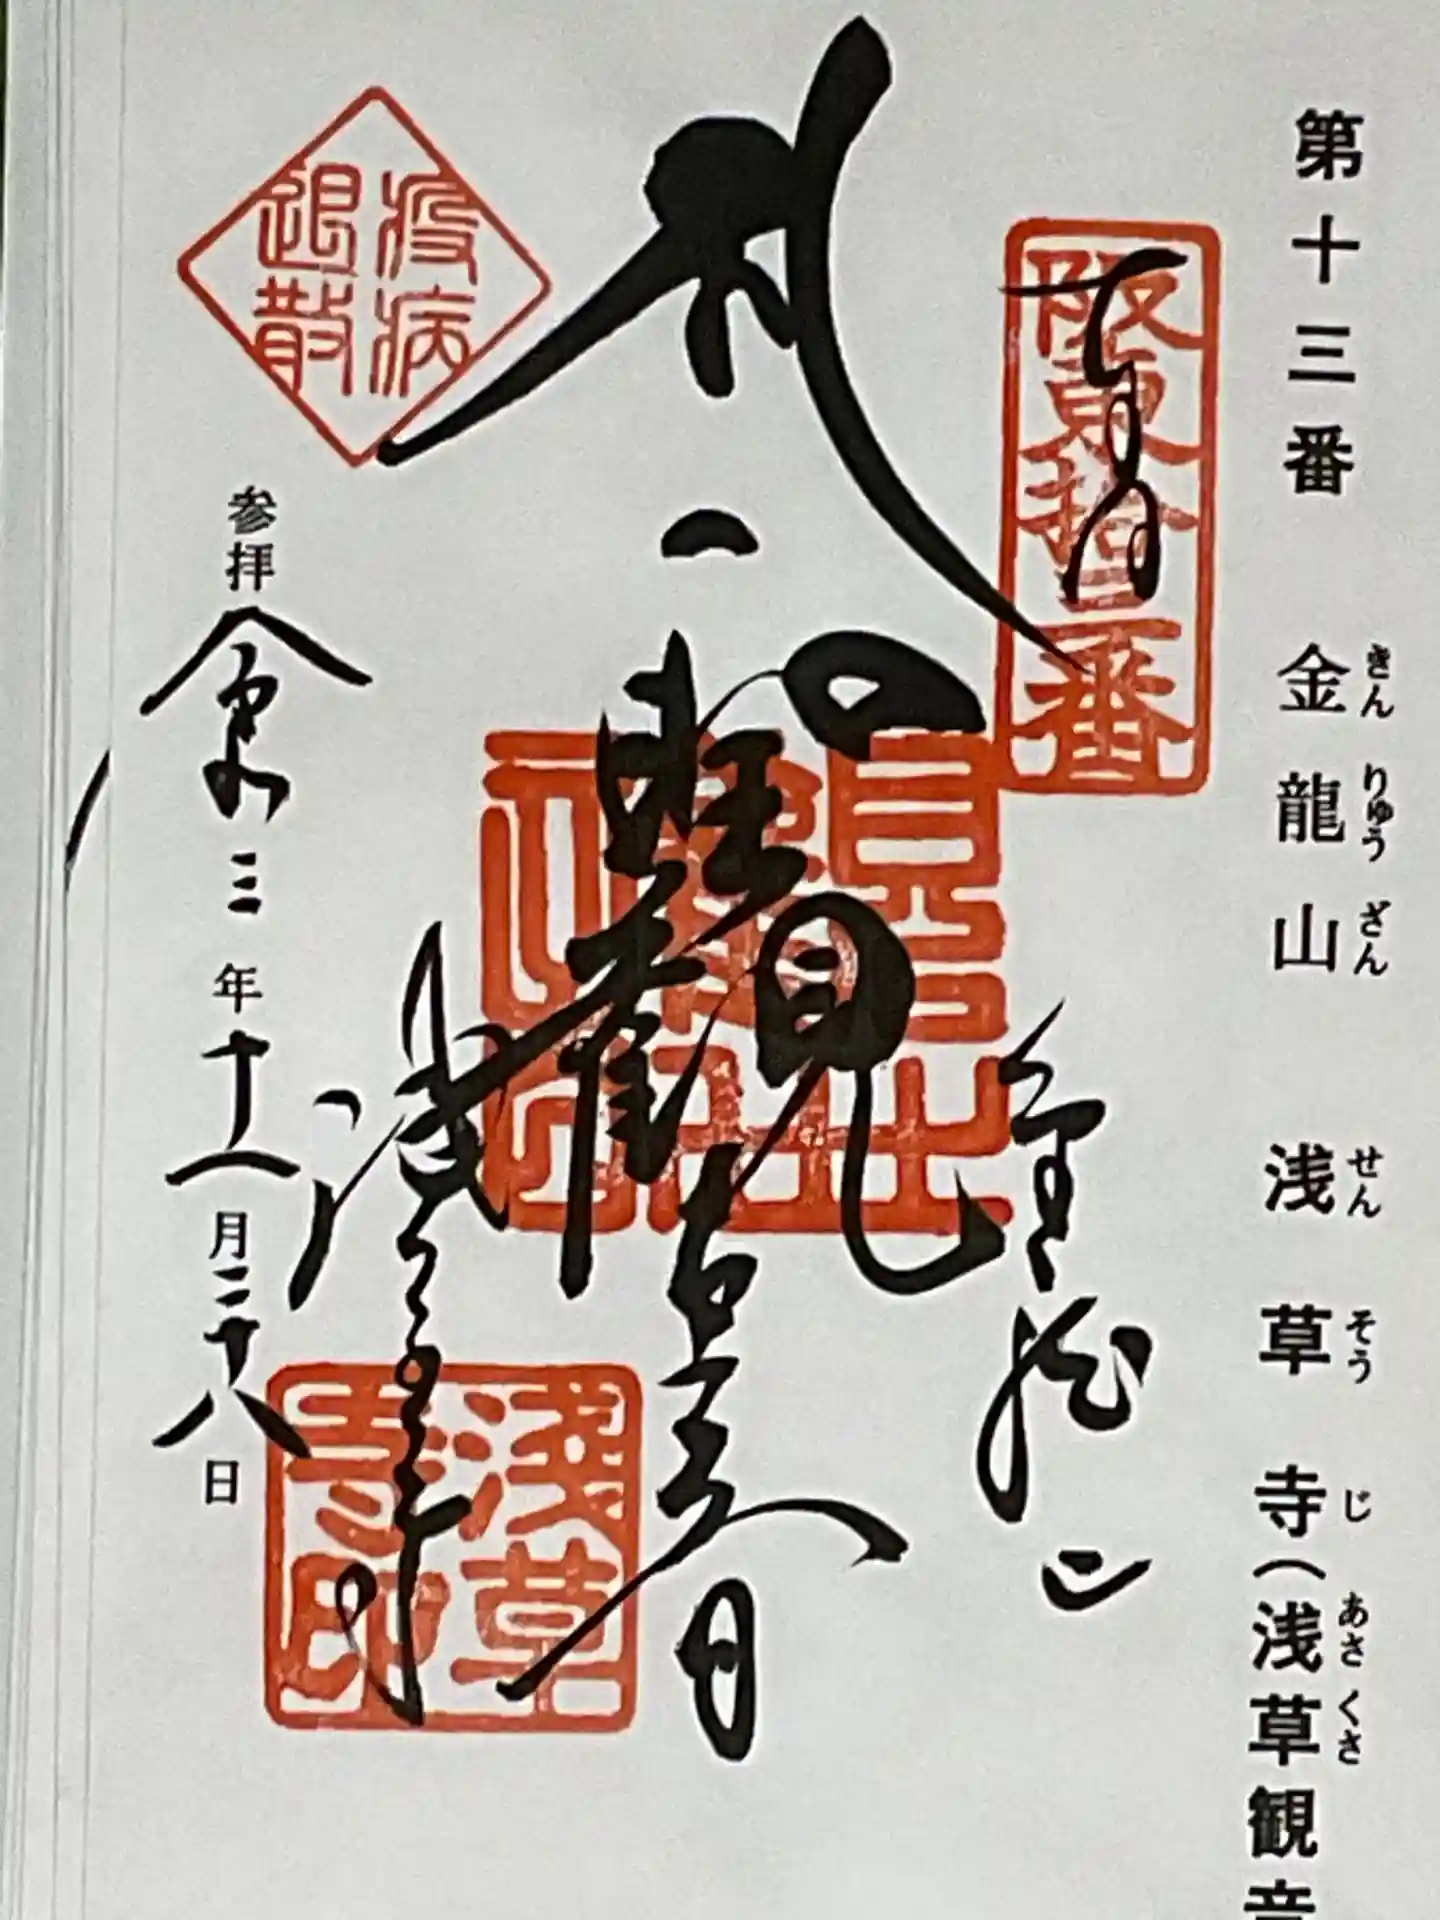 第十三番 金龍山 浅草寺(浅草観音
きんりゅうざん せんそうじ あさくさ
阪東拾三番
奉拝
金龍山
聖観世音
浅草寺
浅草寺印
疫病退散
参拝令和三年十一月二十八日